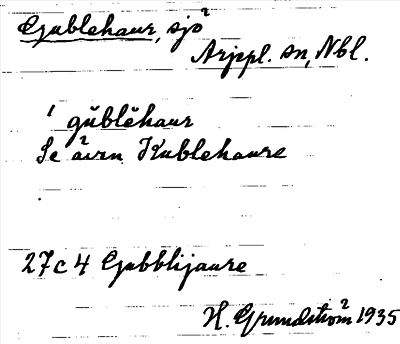 Gublehaur, sjö
Arjepl. sn, Nbl.
1 gŭblĕhaur
Se även Kublehaure
27c4 Gubblijaure
H. Grundström 1935